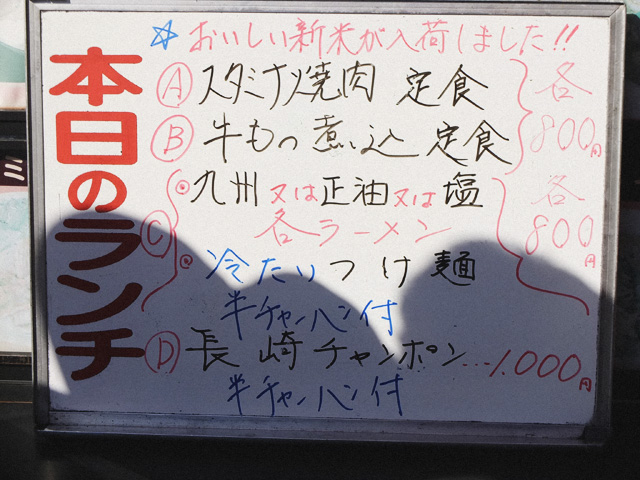 本日のランチ
☆おいしい新米が入荷しました!!
Ⓐ スタミナ焼肉 定食 各800円
Ⓑ 牛もつ煮込 定食
Ⓒ 九州又は正油又は塩 各800円
各ラーメン
冷たいつけ麺
半チャーハン付
Ⓓ 長崎チャンポン...1.000円
半チャーハン付
ミ